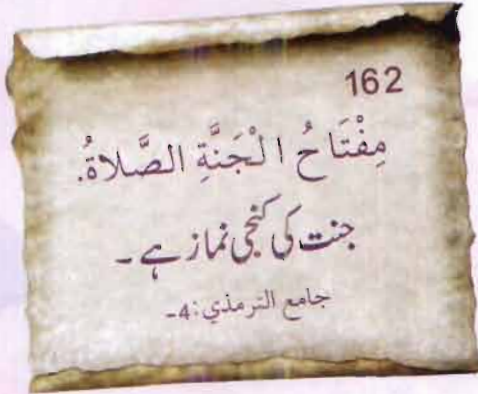 162
مِفْتَاحُ الْجَنَّةِ الصَّلَاةُ.
جنت کی کنجی نماز ہے۔
جامع الترمذي:4-